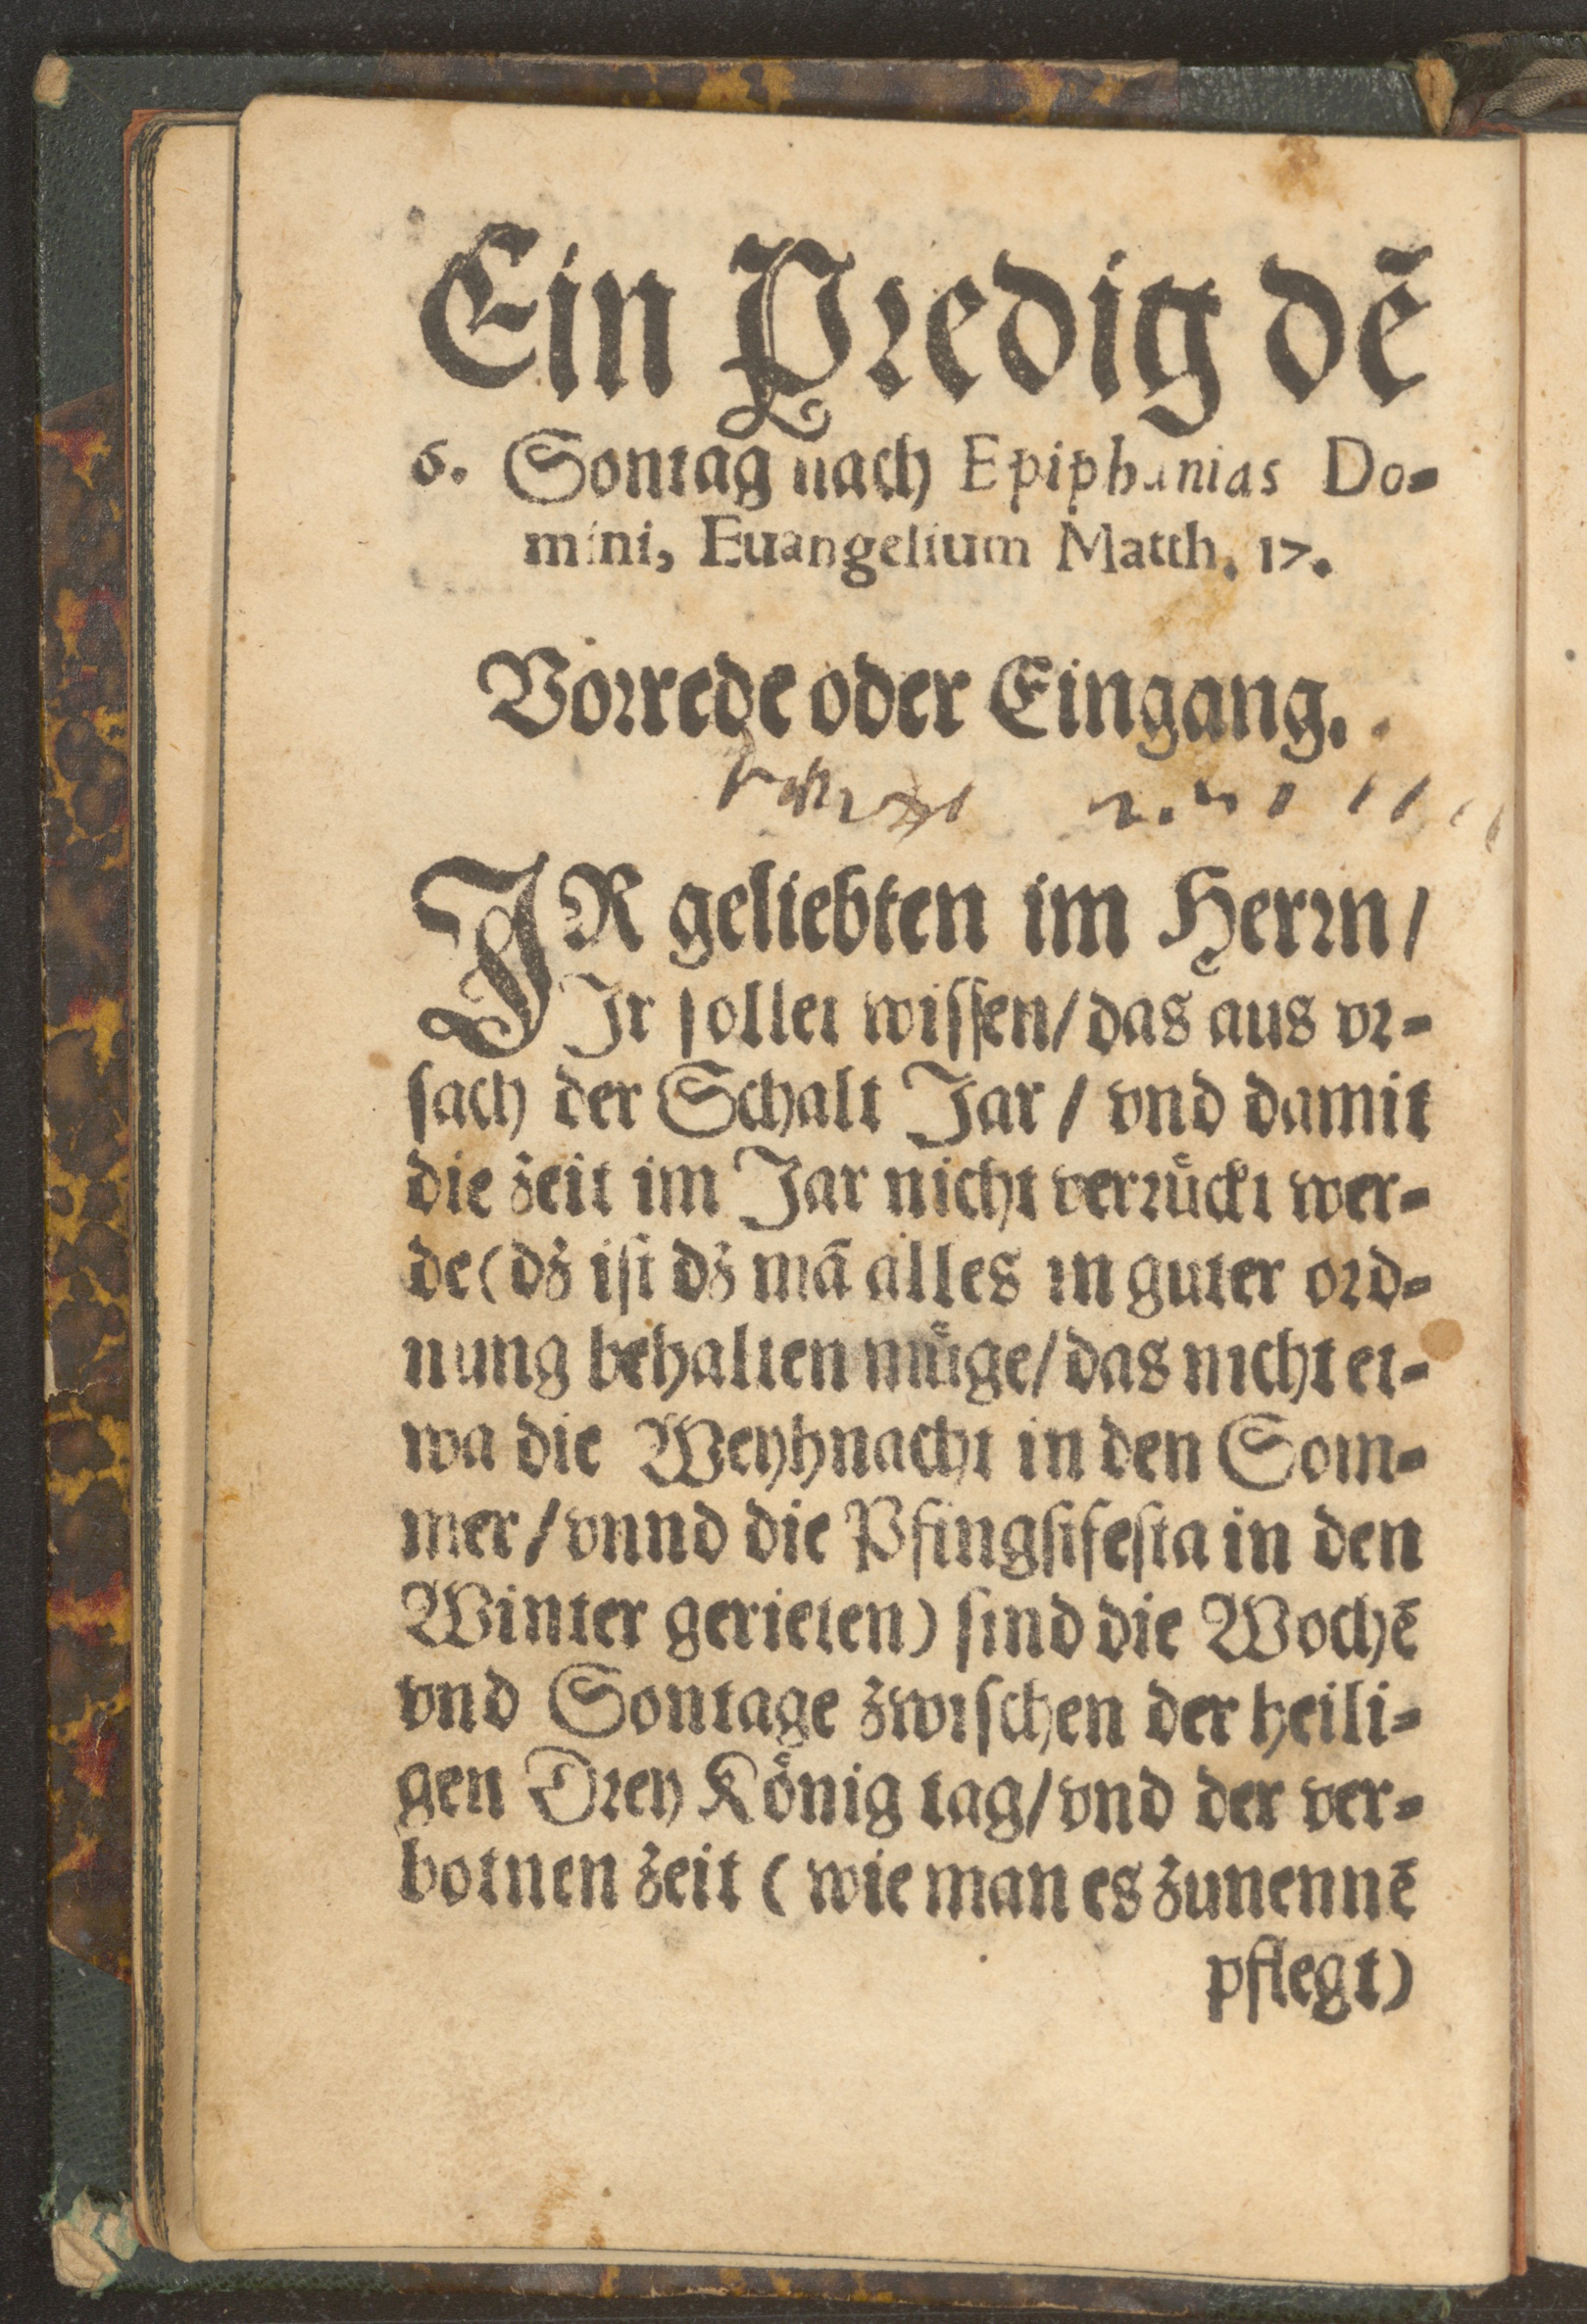 Ein Predig dẽ
6. Sontag nach Epiphanias Do-
mini, Euangelium Matth. 17.
Vorrede oder Eingang.
IR geliebten im Herrn/
Ir sollet wissen/ das aus vr-
sach der Schalt Jar / vnd damit
die zeit im Jar nicht verruͤckt wer-
de (dz ist dz mã alles in guter ord-
nung behalten muͤge/ das nicht et-
wa die Weyhnacht in den Som-
mer / vnnd die Pfingstfesta in den
Winter gerieten) sind die Wochẽ
vnd Sontage zwischen der heili-
gen Drey Koͤnig tag/ vnd der ver-
botnen zeit ( wie man es zunennẽ
pflegt)